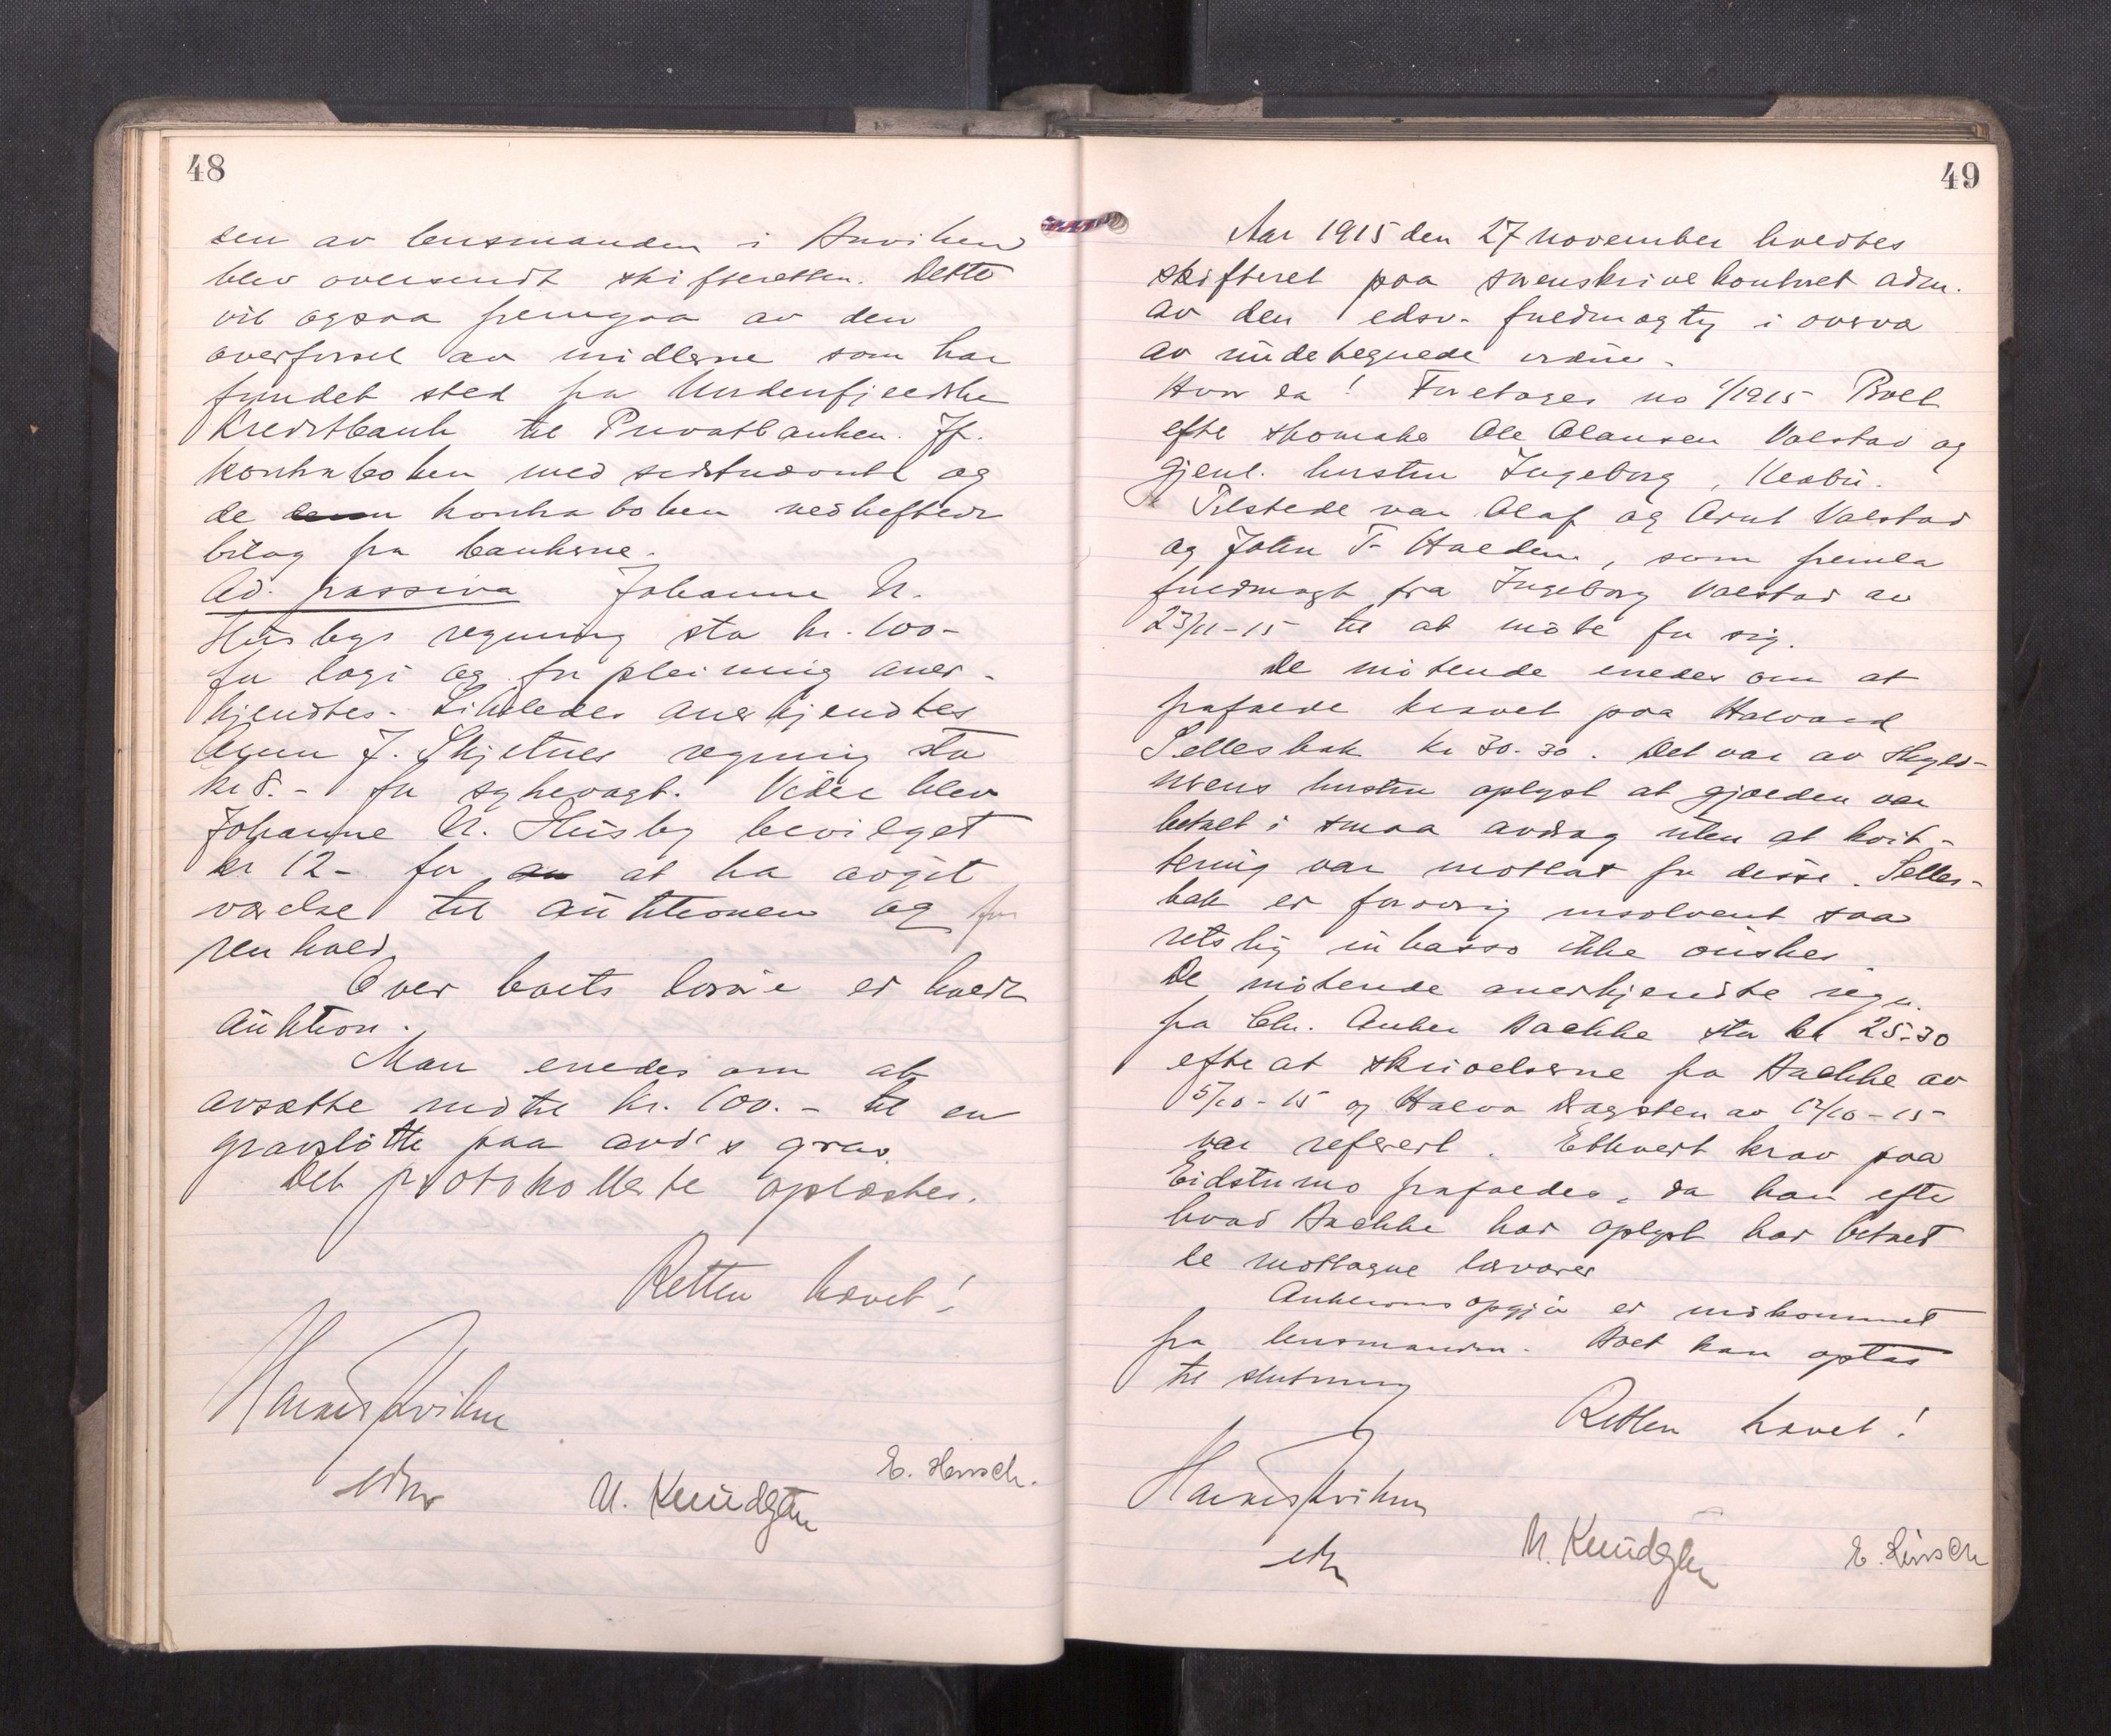 48
sen av lensmanden i Anviken
blev oversendt skifteretten. Dette
vil ogsaa fremgaa av den
overførsel av midlerne som har
fundet sted fra Nordenfjeldske
Kreditbank til Privatbanken. Jf.
kontraboken med sidstnævnte og
de kontraboken vedheftede
bilag fra bankerne.
Ad. passiva Johanne N.
Husbys regning sto kr. 100-
for logi og forpleining aner-
kjendtes. Likeledes anerkjendtes
J. Skjetnes regning sto
kr 8.- for sykevagt. Videre blev
Johanne N. Husby bevilget
kr 12- for at ha avgit
værelse til auktionen og for
renhold.
Over boets løsøre er holdt
auktion.
Man enedes om at
avsætte indtil kr. 100.- til en
gravstøtte paa avd's grav.
Det protokollerte oplæstes.
Retten hævet!
edsv
N. Knudgtu
E. Hirsch.
49
Aar 1915 den 27 november holdtes
skifteret paa sorenskriverkontoret adm.
av den edsv. fuldmægtig i overvær
av undertegnede vidner.
Hvor da! Foretages no 1/1915 Boet
efter skomaker Ole Olausen Valstad og
gjenl. hustru Ingeborg,
Tilstede var Olaf og Arnt Valstad
og John T. Halden, som fremla
fuldmagt fra Ingeborg Valstad av
23/11-15 til at møte for sig.
De møtende enedes om at
frafalde kravet paa Halvard
Sellesbak kr 30.30. Det var av Skyld-
nerens hustru oplyst at gjælden var
betalt i smaa avdrag uten at kvit-
tering var mottat for disse. Selles-
bak er forøvrig insolvent saa
retslig inkasso ikke ønskes
De møtende anerkjendte regn.
fra Chr. Anker Bachke stor kr 25.30
efter at skrivelserne fra Bachke av
5/10-15 og Halvor Dagsten av 12/10-15
var referert. Ethvert krav paa
Eidstumo frafaldes, da han efter
hvad Bachke har oplyst har betalt
de mottagne lærvarer
Auktionsopgjør er indkommet
fra lensmanden. Boet kan optas
til slutning
Retten hævet!
edsv
N. Knudgtu
E. Hirsch